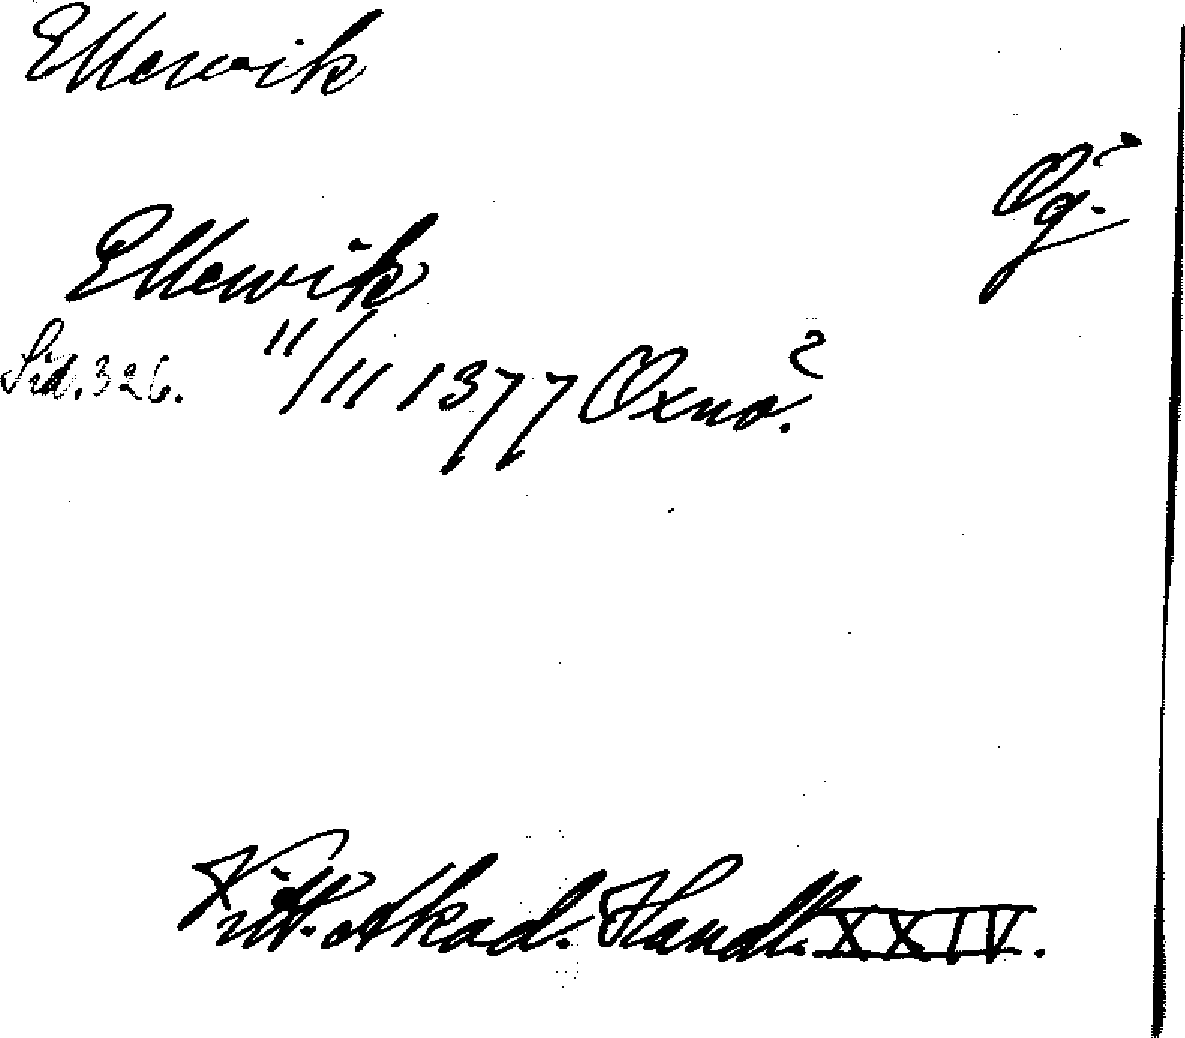 Ellewik
Ög.
Ellewik
Sid. 326. 11/11 1377 Oxnö.
Vitt. Akad. Handl. XXIV.